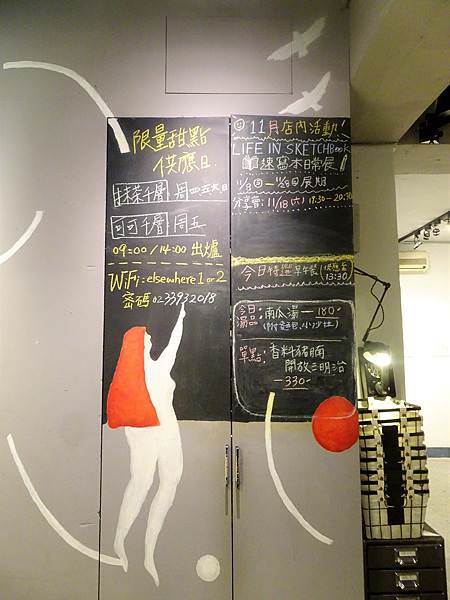 限量甜點
供應日.
抹茶千層 周四五六日
可可千層 周五
09:00/14:00 出爐
WiFi:elsewhere1 or 2
密碼:02 33932018
11月店內活動!
LIFE IN SKETCHBook
速寫本日常展
展期
分享會: 11/18(六) 19:30-20:30
今日特選早午餐(供應至13:30)
今日湯品:南瓜湯-180-
(附麵包、小沙拉)
單點:香料豬腩
開放三明治
-330-